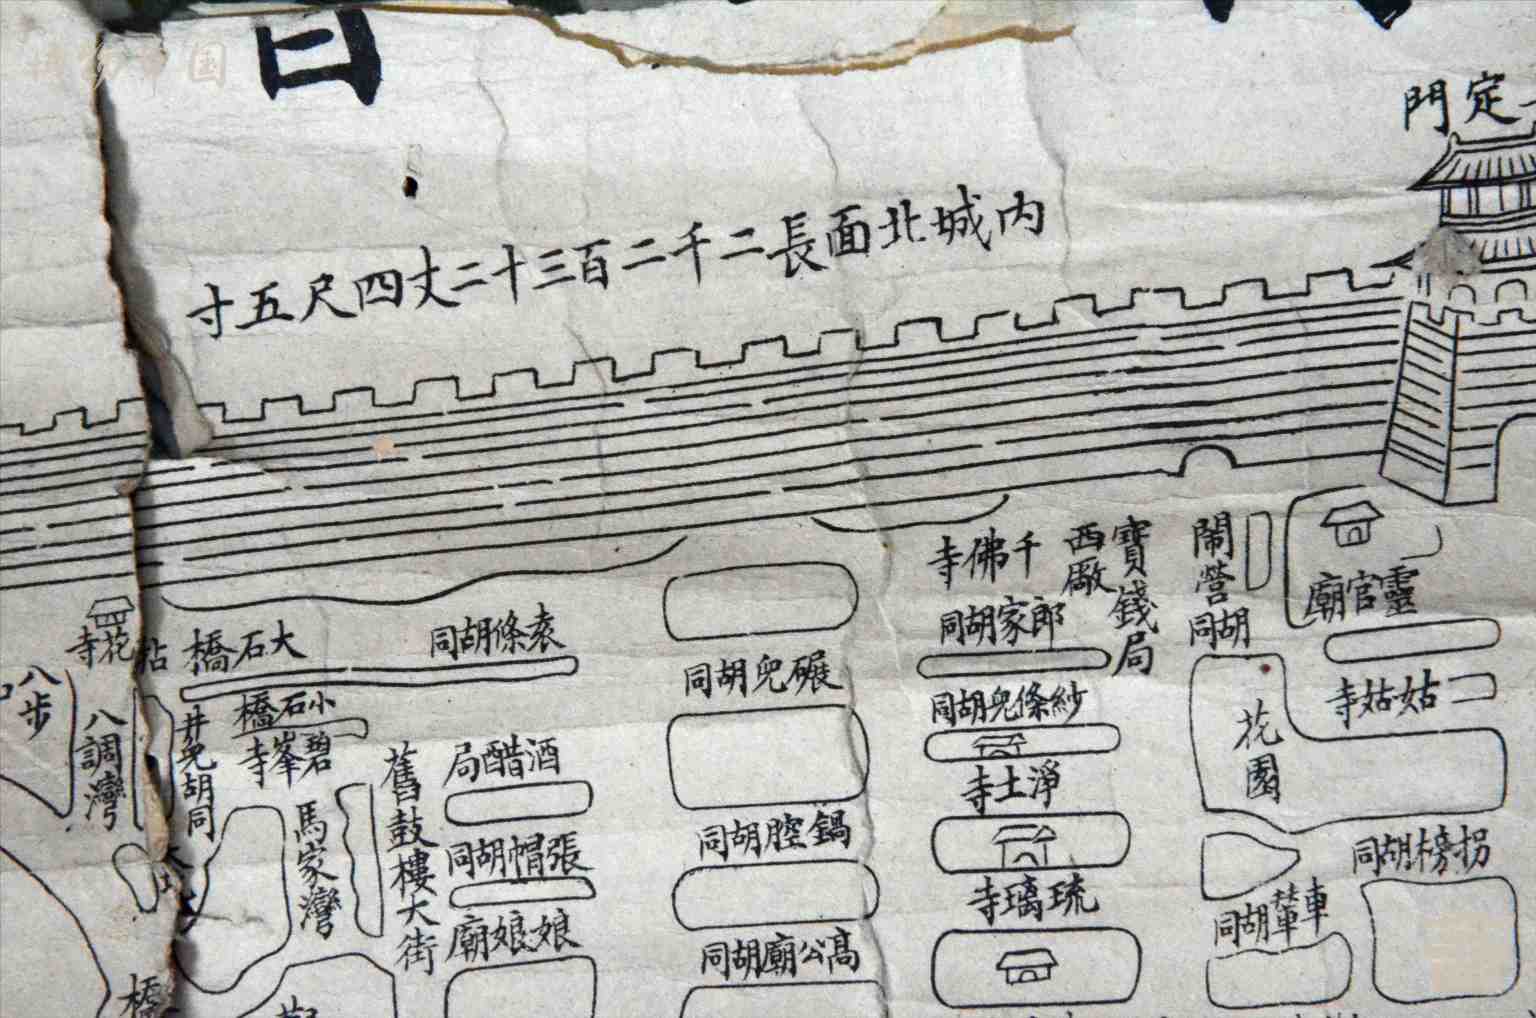 定門
內城北面長二千二百三十二丈四尺五寸
靈官廟
姑姑寺
鬧營
胡同
花園
拐榜胡同
車輦胡同
寶錢局
西廠
千佛寺
郎家胡同
紗條兒胡同
淨土寺
琉璃寺
碾兒胡同
鍋腔胡同
高公廟胡同
袁條胡同
酒醋局
張帽胡同
娘娘廟
舊鼓樓大街
大石橋
小石橋
碧峯寺
馬家灣
井兒胡同
八調灣
八步
拈花寺
橋